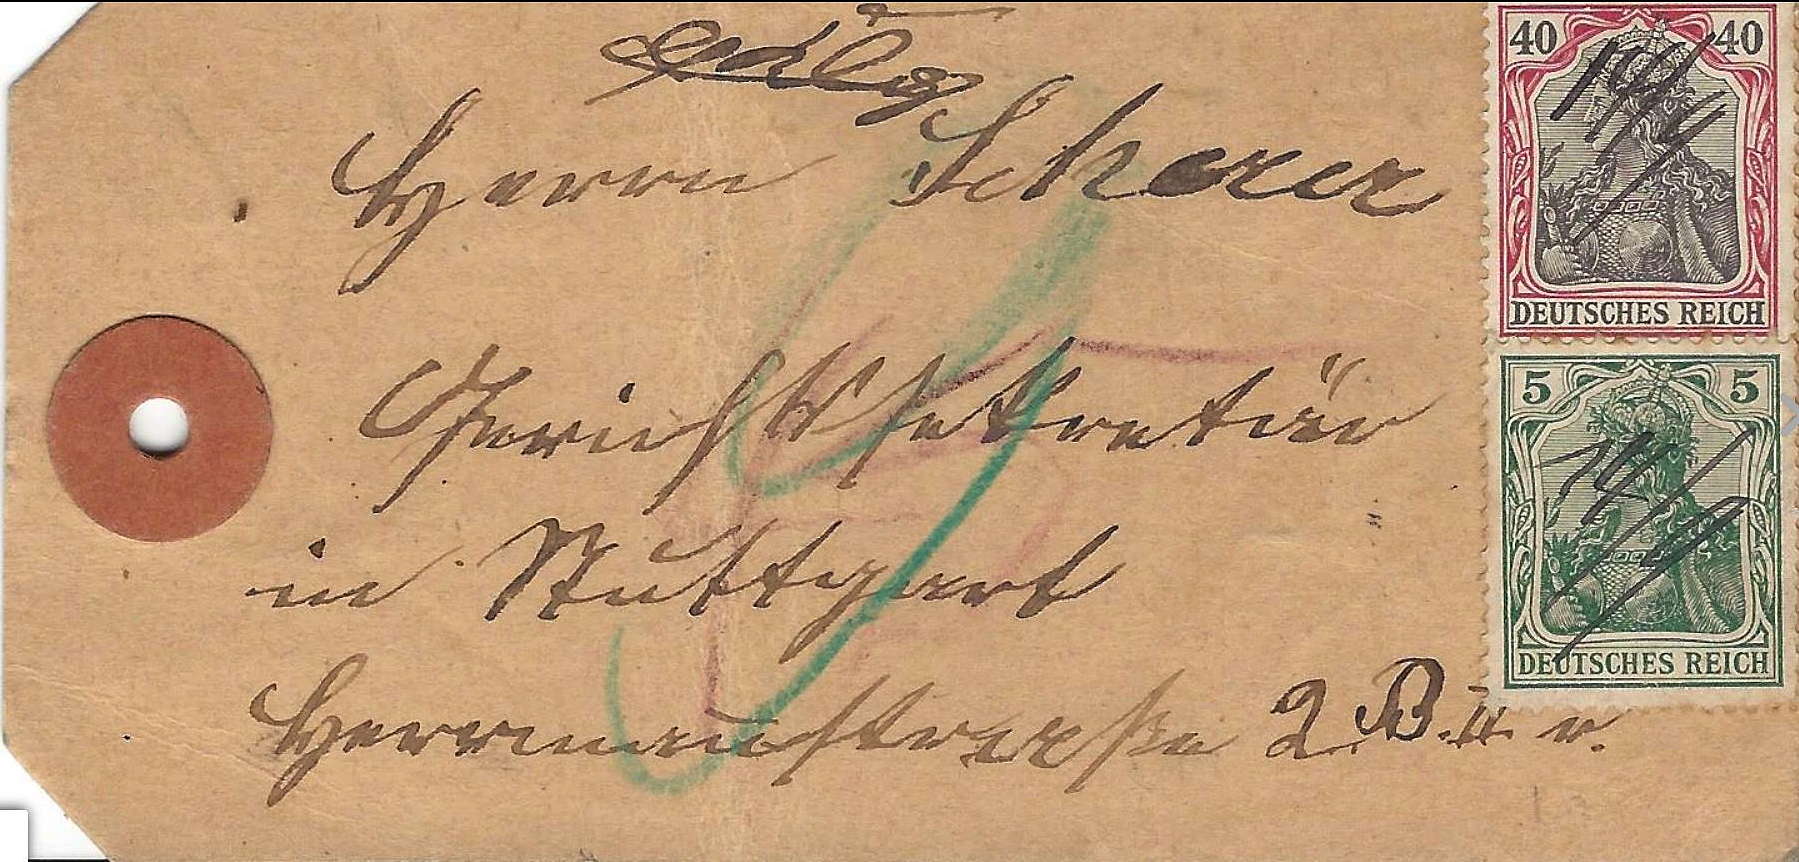 Herrn Scherer
Gerichtssekretär
in Stuttgart
Hermannstrasse 2 B. II. r.
40 40
DEUTSCHES REICH
5 5
DEUTSCHES REICH